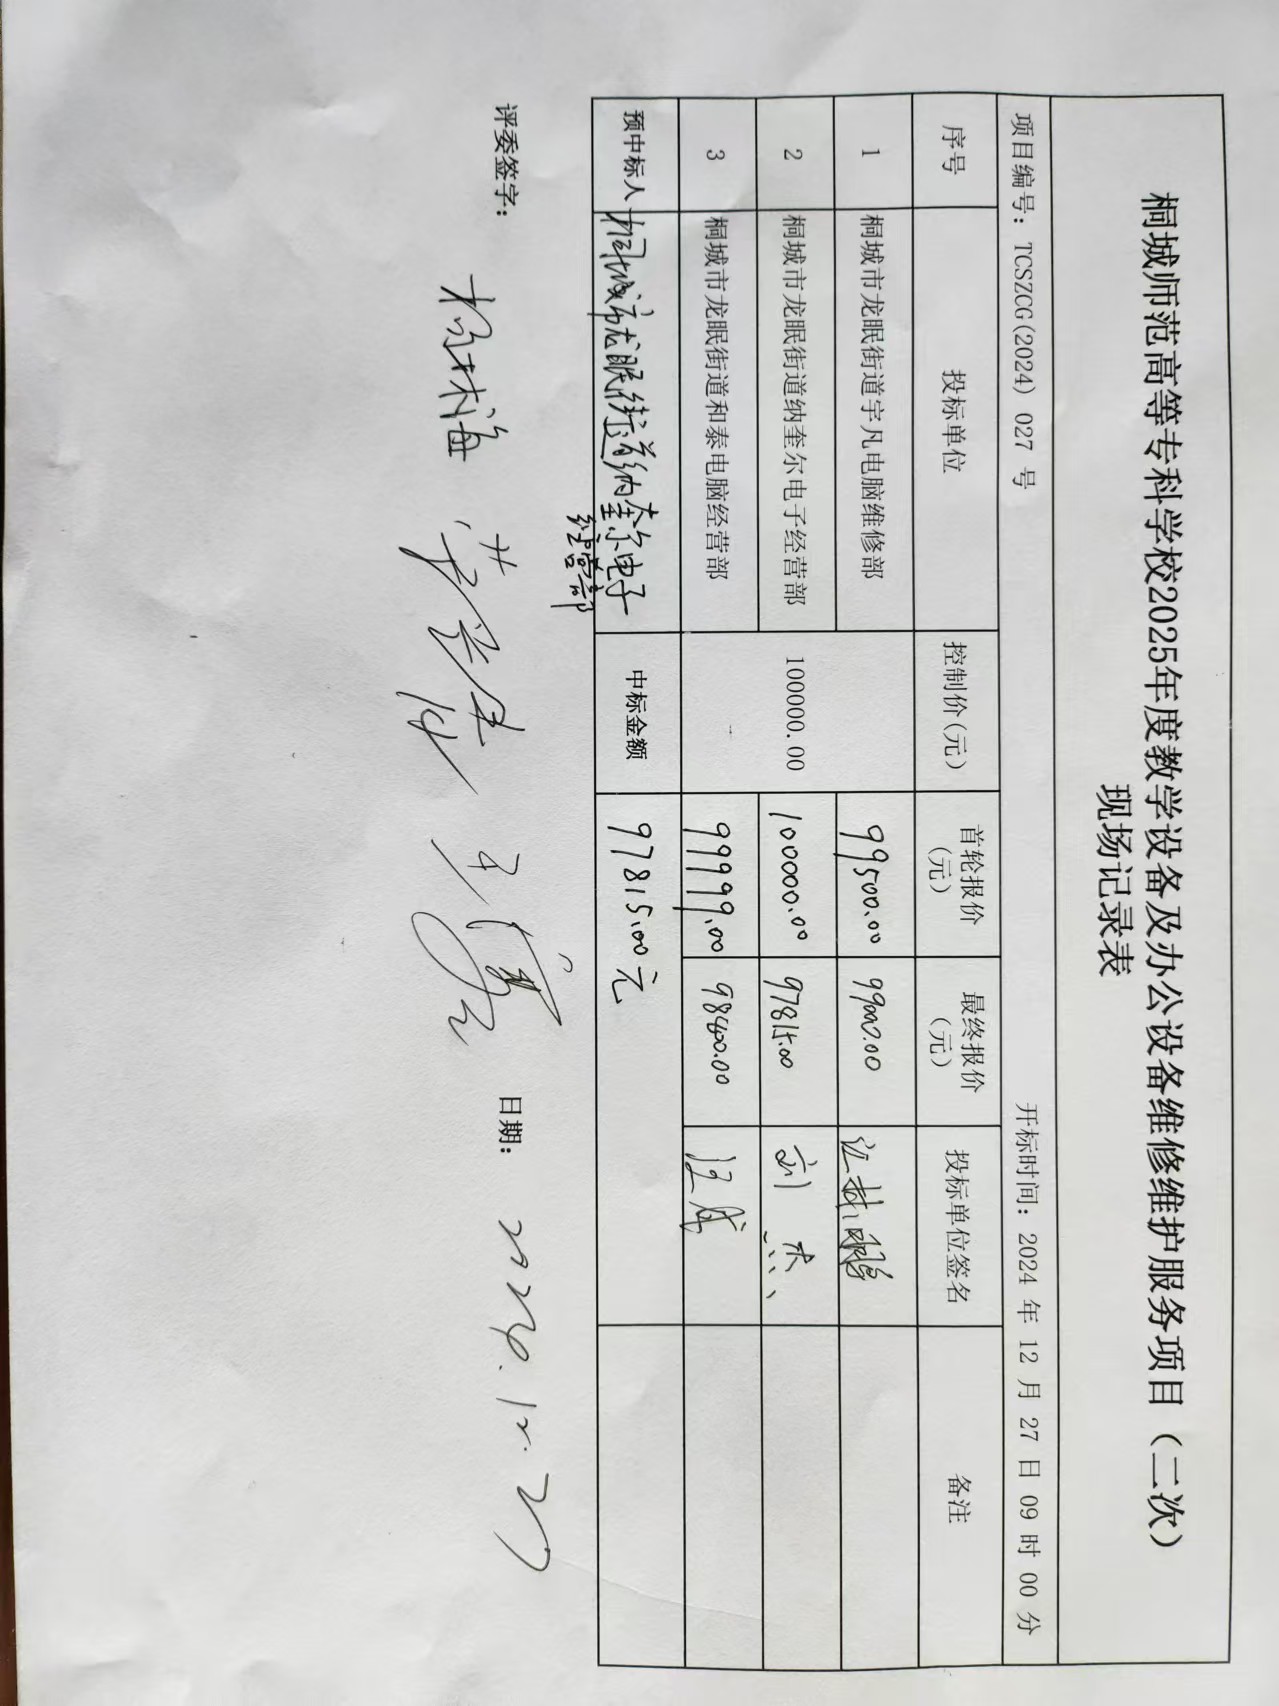 桐城师范高等专科学校2025年度教学设备及办公设备维修维护服务项目（二次）
现场记录表
项目编号：TCSZCG(2024) 027 号 开标时间：2024 年 12 月 27 日 09 时 00 分
序号 投标单位 控制价(元) 首轮报价(元) 最终报价(元) 投标单位签名 备注
1 桐城市龙眠街道宇凡电脑维修部 99500.00 99000.00
2 桐城市龙眠街道纳奎尔电子经营部 100000.00 100000.00 97815.00 刘杰
3 桐城市龙眠街道和泰电脑经营部 99999.00 98400.00
预中标人 桐城市龙眠街道纳奎尔电子经营部 中标金额 97815.00元
评委签字： 日期：2024.12.27